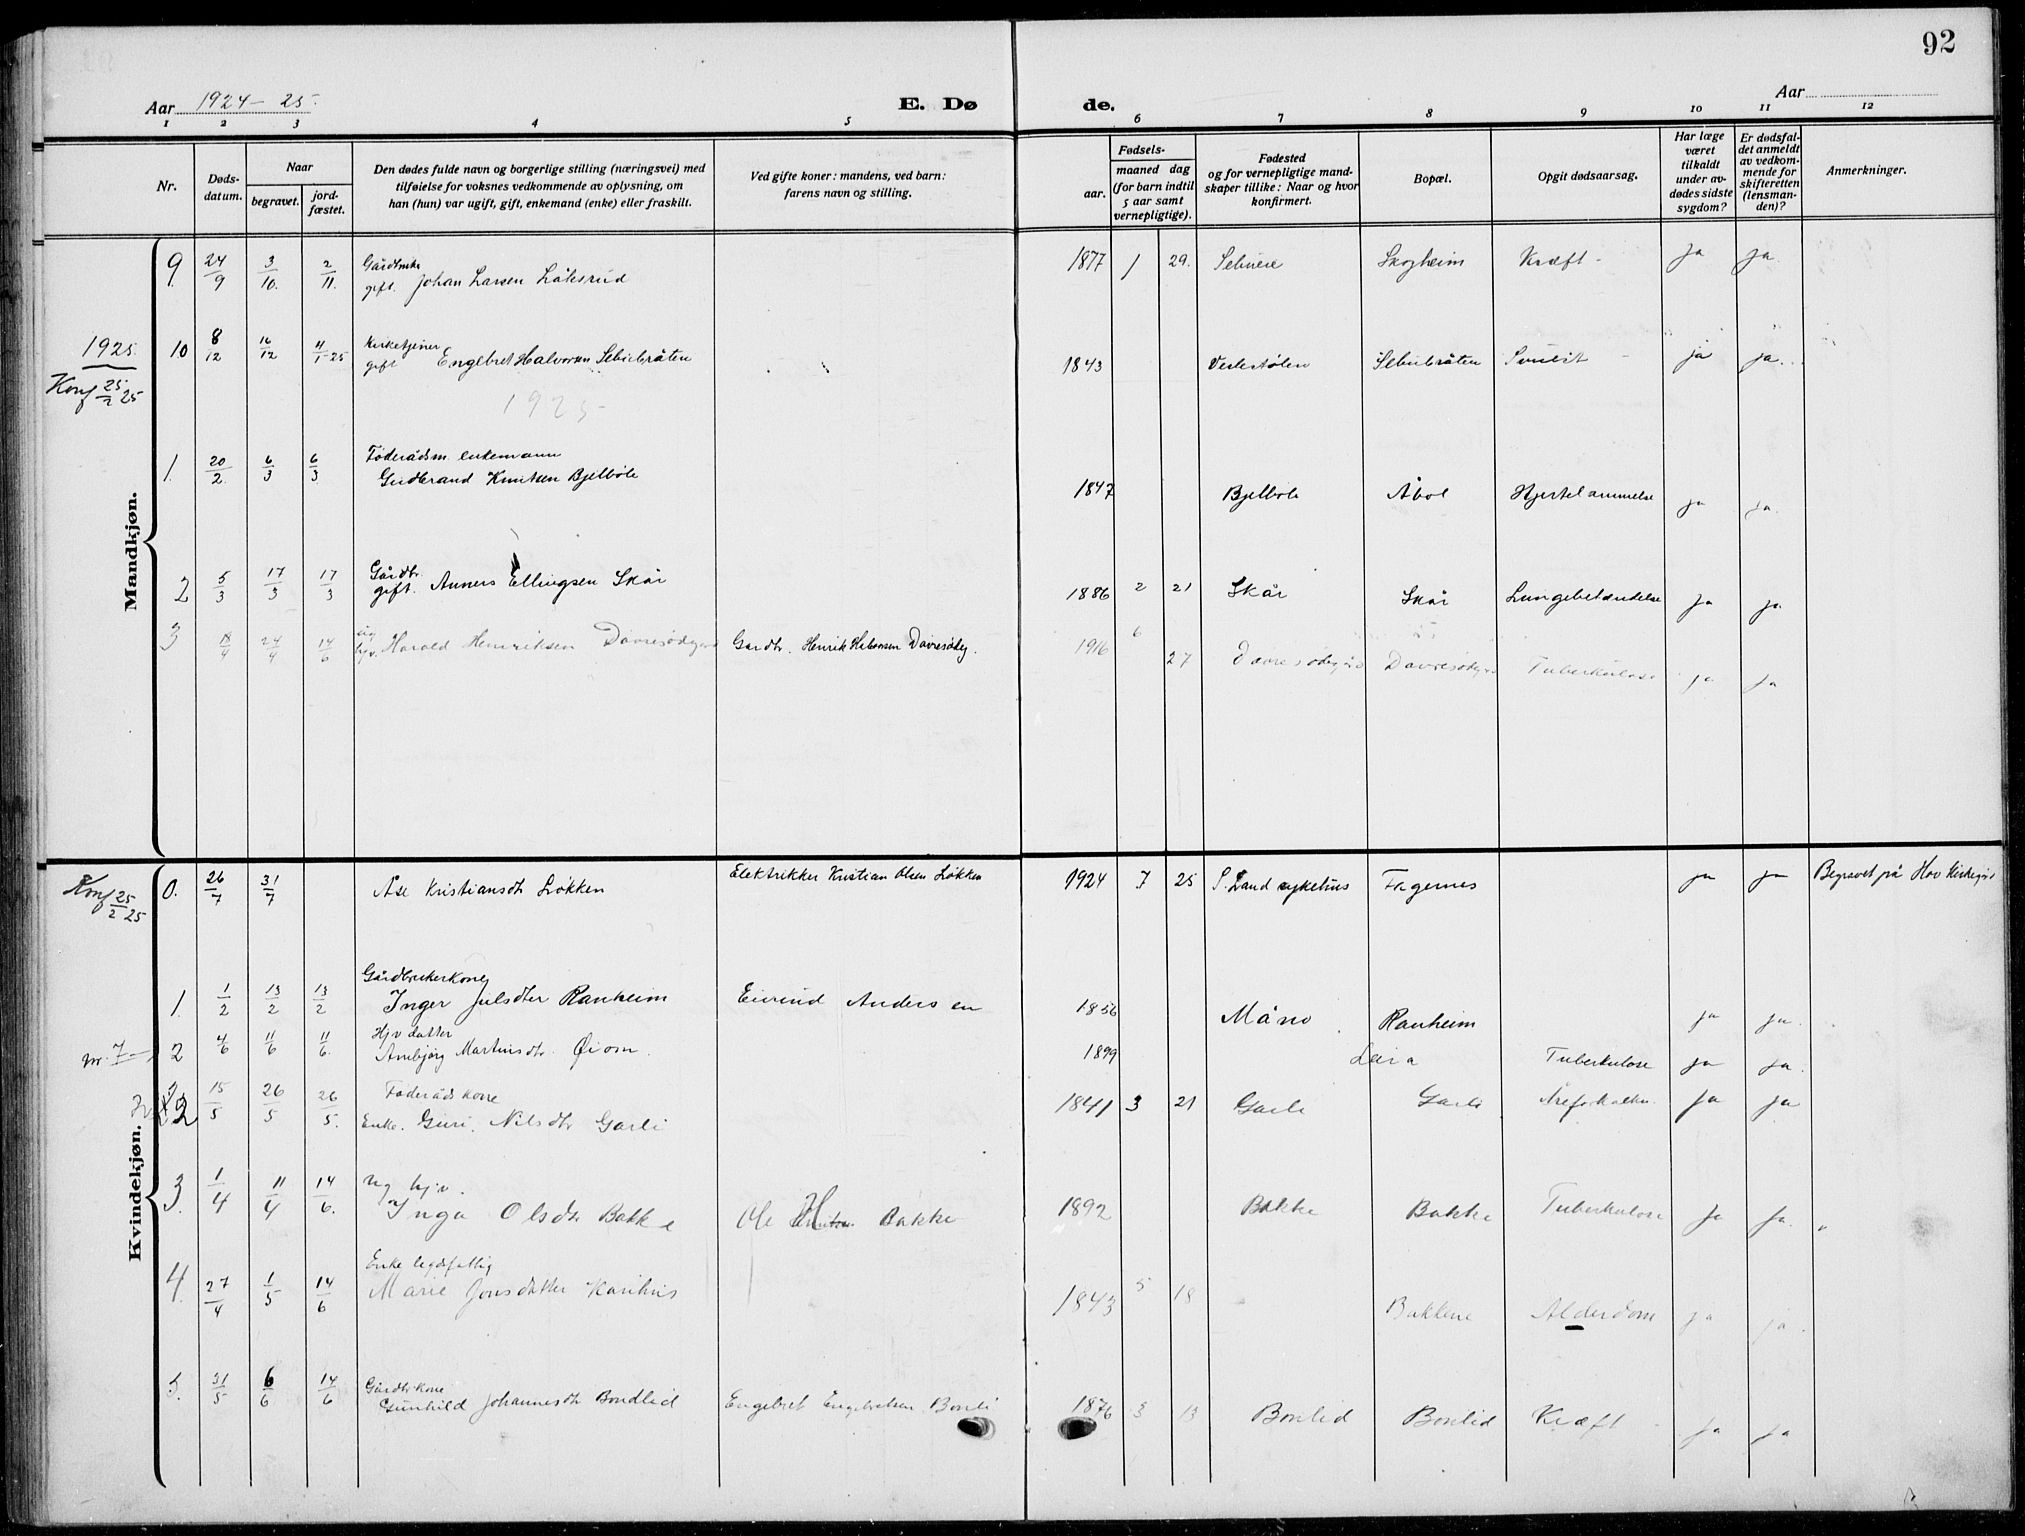 92
Aar 1924-25.
E. Døde.
Aar
1 2 3 4 5 6 7 8 9 10 11 12
Nr.
Døds-
datum.
Naar
begravet.
jord-
fæstet.
Den dødes fulde navn og borgerlige stilling (næringsvei) med
tilføielse for voksnes vedkommende av oplysning, om
han (hun) var ugift, gift, enkemand (enke) eller fraskilt.
Ved gifte koner: mandens, ved barn:
farens navn og stilling.
Fødsels-
aar.
maaned dag
(for barn indtil
5 aar samt
vernepligtige).
Fødested
og for vernepligtige mand-
skaper tillike: Naar og hvor
konfirmert.
Bopæl.
Opgit dødsaarsag.
Har læge
været
tilkaldt
under av-
dødes sidste
sygdom?
Er dødsfal-
det anmeldt
av vedkom-
mende for
skifteretten
(lensman-
den)?
Anmerkninger.
Mandkjøn.
9. 24/9 3/10. 2/11. gift. Johan Larsen 1877 1 29. Skogheim Kræft - ja ja.
1925.
Konf 25/2 25
10 8/12 16/12 4/1-25 Kirketjener
gift Engebret Halvorsen 1843 ja ja.
1925-
1. 20/2. 6/3 6/3 Føderådsm. enkemann
Gudbrand Knutsen Bjelbøle 1847 Bjelbøle Åbol Hjertelammelse ja ja.
2 5/3 17/3 17/3 Gårdbr.
gift. Anners Ellingsen Skår 1886 2 21 Skår Skår Lungebetændelse ja ja
3 18/4 24/4 14/6 ug
hjv. Harald Henriksen Davresødegard Gardbr. Henrik Davresødeg. 1916 6 27 Davresødegård Davresødegård Tuberkulose ja ja
Kvindekjøn.
Konf 25/2 25
0. 26/7 31/7 Åse Kristiansdtr Løkken Elektrikker Kristian Olsen Løkken 1924 7 25 S. Land sykehus Fagernes ja ja Begravet på Hov kirkegård
1. 1/2 13/2 13/2 Gårdbrukerkone
Inger Julsdtter Ranheim Eivind Andersen 1856 Måno Ranheim ja ja.
nr. 7- 2 4/6 11/6 11/6. Hjv datter
Arnbjørg Martinsdtr. Øiom. 1899 Leira Tuberkulose ja ja.
2 15/5 26/5 26/5. Føderådskone
Enke. Guri Nilsdtr Garli 1841 3 21 Garli Garli Åreforkalkn. ja ja
3. 1/4 11/4 14/6. ug hjv.
Inga Olsdtr Bakke Ole Bakke 1892 Bakke Bakke Tuberkulose ja ja. "
4. 27/4 1/5 14/6 Enke legdfattig
Marie Jonsdatter Karihus 1843 5 18 Bakkene Alderdom ja ja.
5. 31/5 6/6 14/6 Gårdbr kone
Gunhild Johannesdtr Bondlid Engebret Engebretsen Bonli 1876 3 13 Bonlid Bonlid Kræft - ja ja